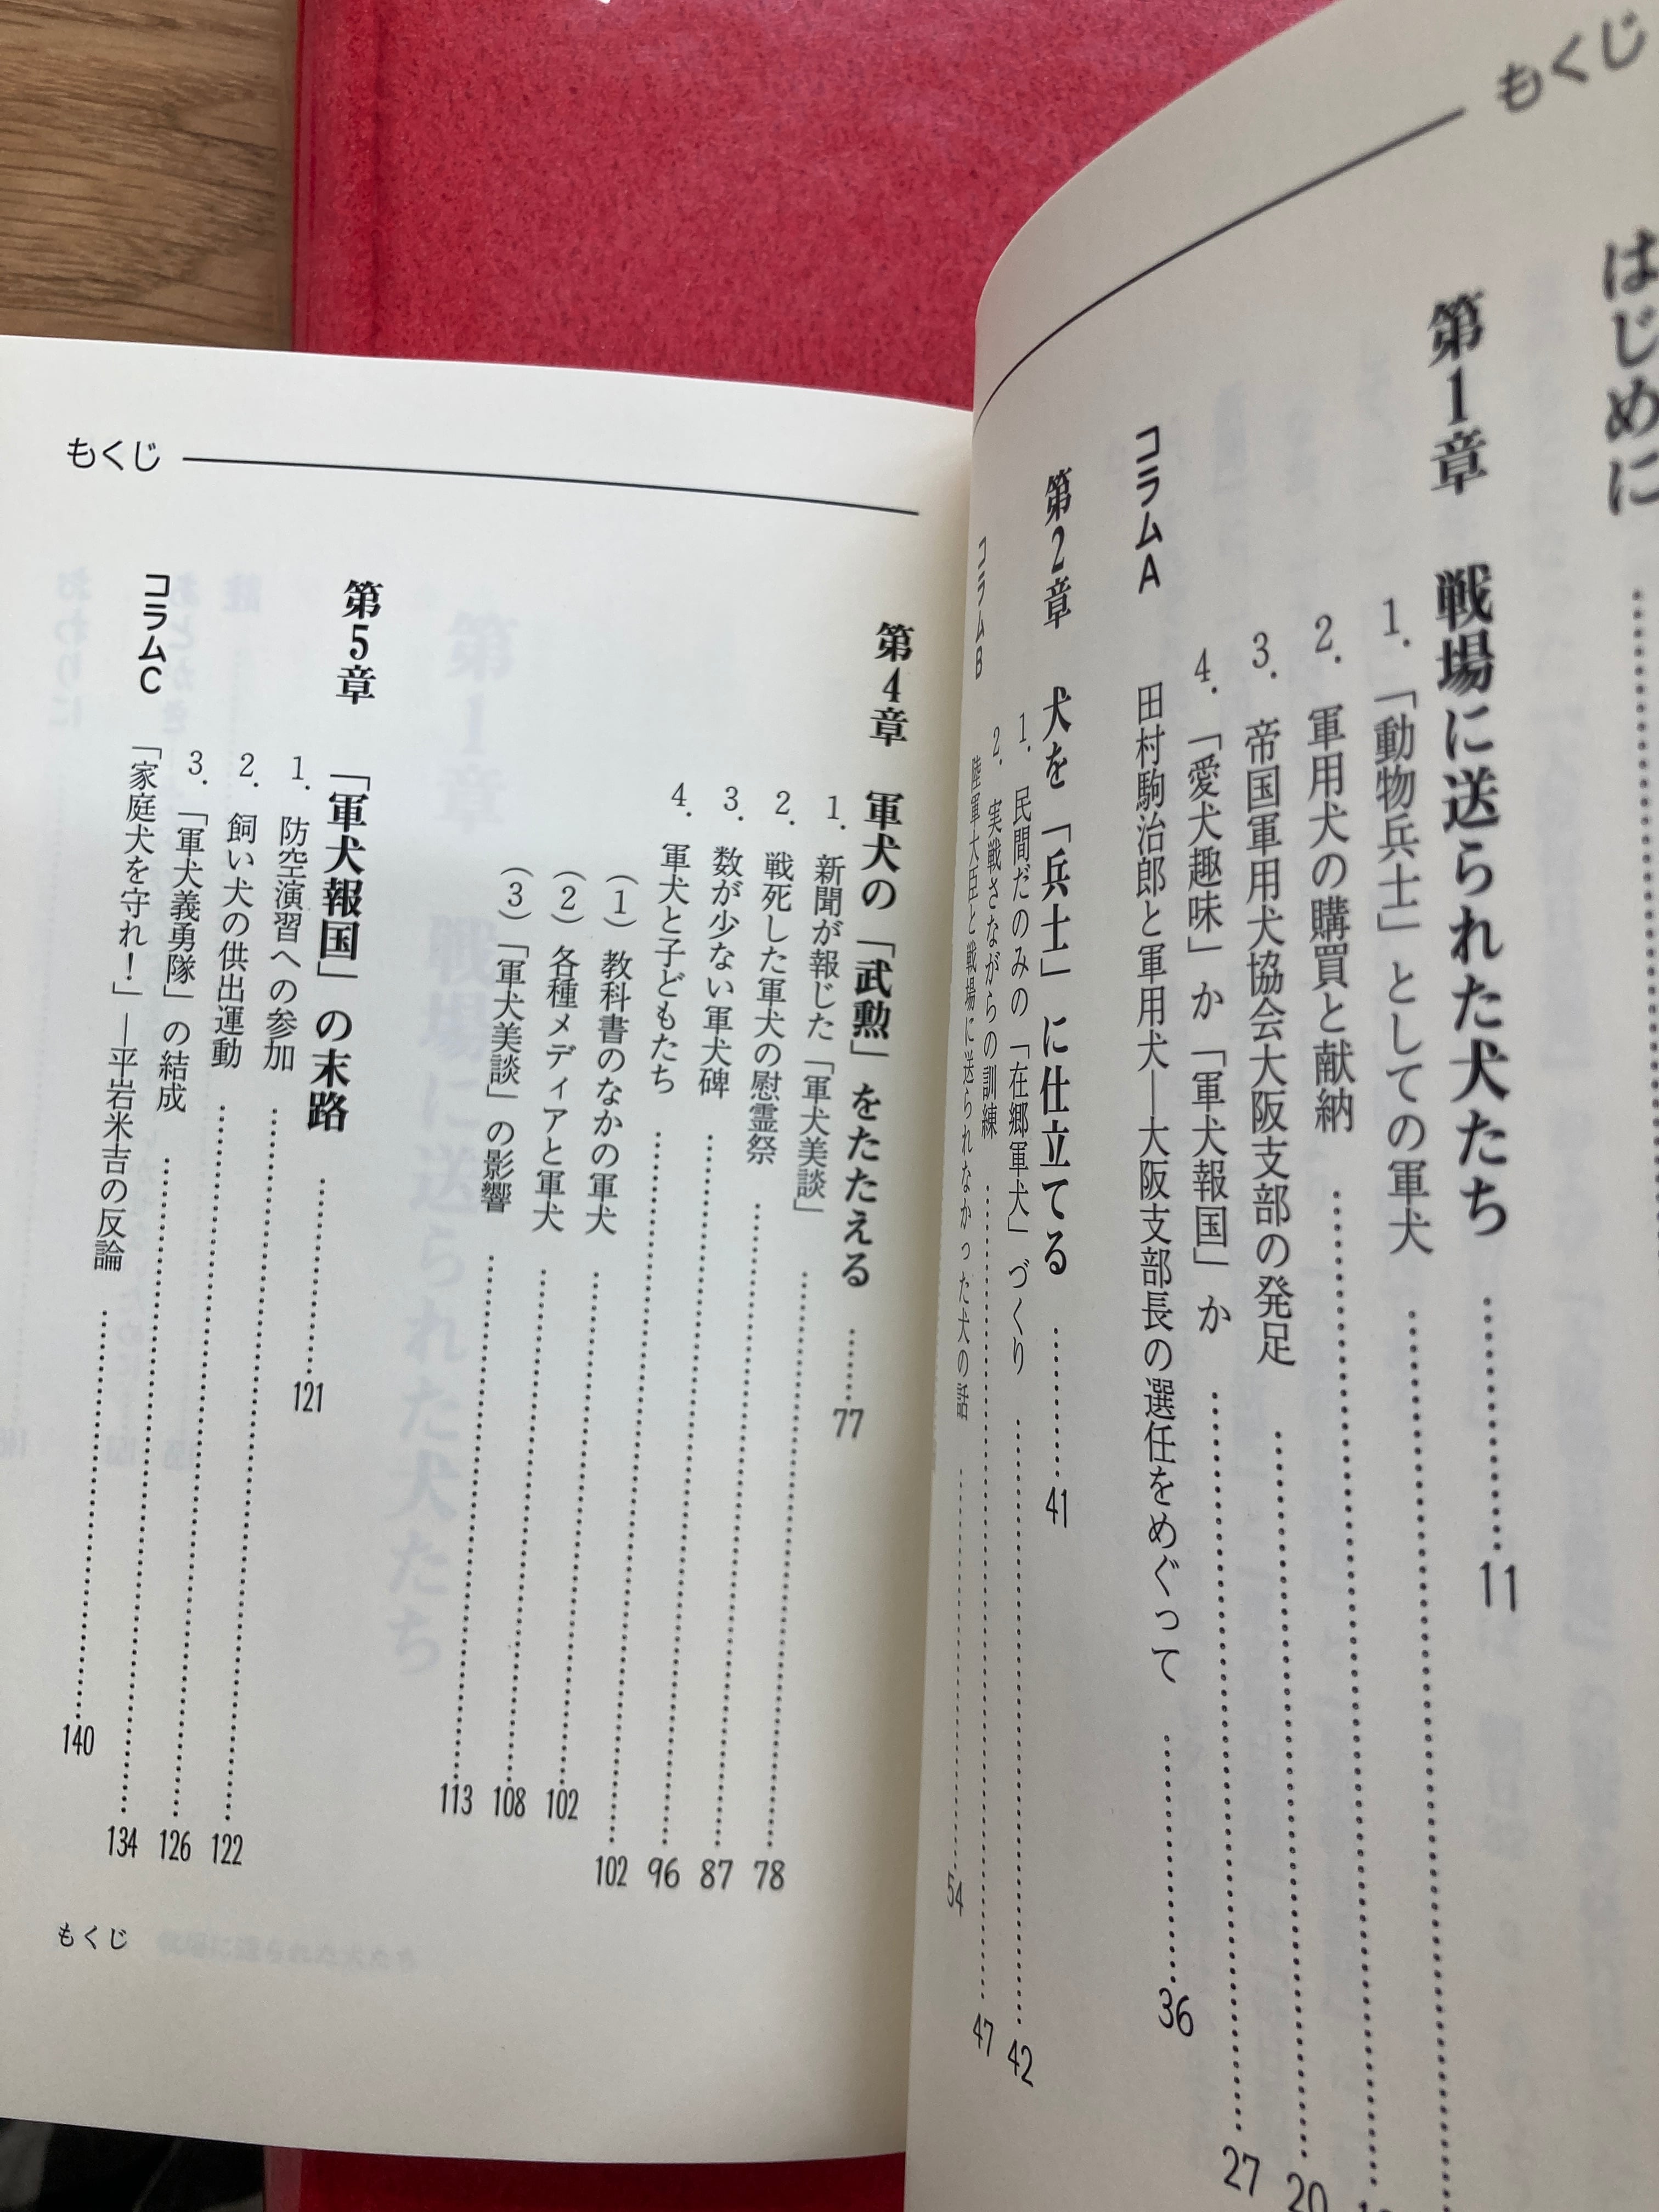 もくじ
はじめに
第1章 戦場に送られた犬たち 11
1. 「動物兵士」としての軍犬
2. 軍用犬の購買と献納
3. 帝国軍用犬協会大阪支部の発足 20
4. 「愛犬趣味」か「軍犬報国」か 27
コラムA 田村駒治郎と軍用犬―大阪支部長の選任をめぐって 36
第2章 犬を「兵士」に仕立てる 41
1. 民間だのみの「在郷軍犬」づくり 42
2. 実戦さながらの訓練 47
コラムB 陸軍大臣と戦場に送られなかった犬の話 54
もくじ
第4章 軍犬の「武勲」をたたえる 77
1. 新聞が報じた「軍犬美談」 78
2. 戦死した軍犬の慰霊祭 87
3. 数が少ない軍犬碑 96
4. 軍犬と子どもたち 102
(1) 教科書のなかの軍犬 102
(2) 各種メディアと軍犬 108
(3) 「軍犬美談」の影響 113
第5章 「軍犬報国」の末路 121
1. 防空演習への参加 122
2. 飼い犬の供出運動 126
3. 「軍犬義勇隊」の結成 134
コラムC 「家庭犬を守れ!」―平岩米吉の反論 140
もくじ